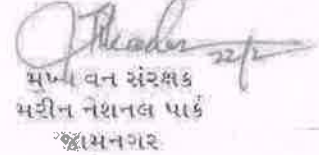 22/2
મુખ્ય વન સંરક્ષક
મરીન નેશનલ પાર્ક
જામનગર